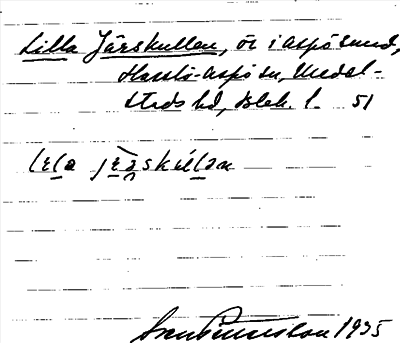 Lilla Järskullen, ö i Aspö sund,
Hasslö-Aspö sn, Medel-
stads hd, Blek. l. 51
lɛla jæ̀skúlən
1935